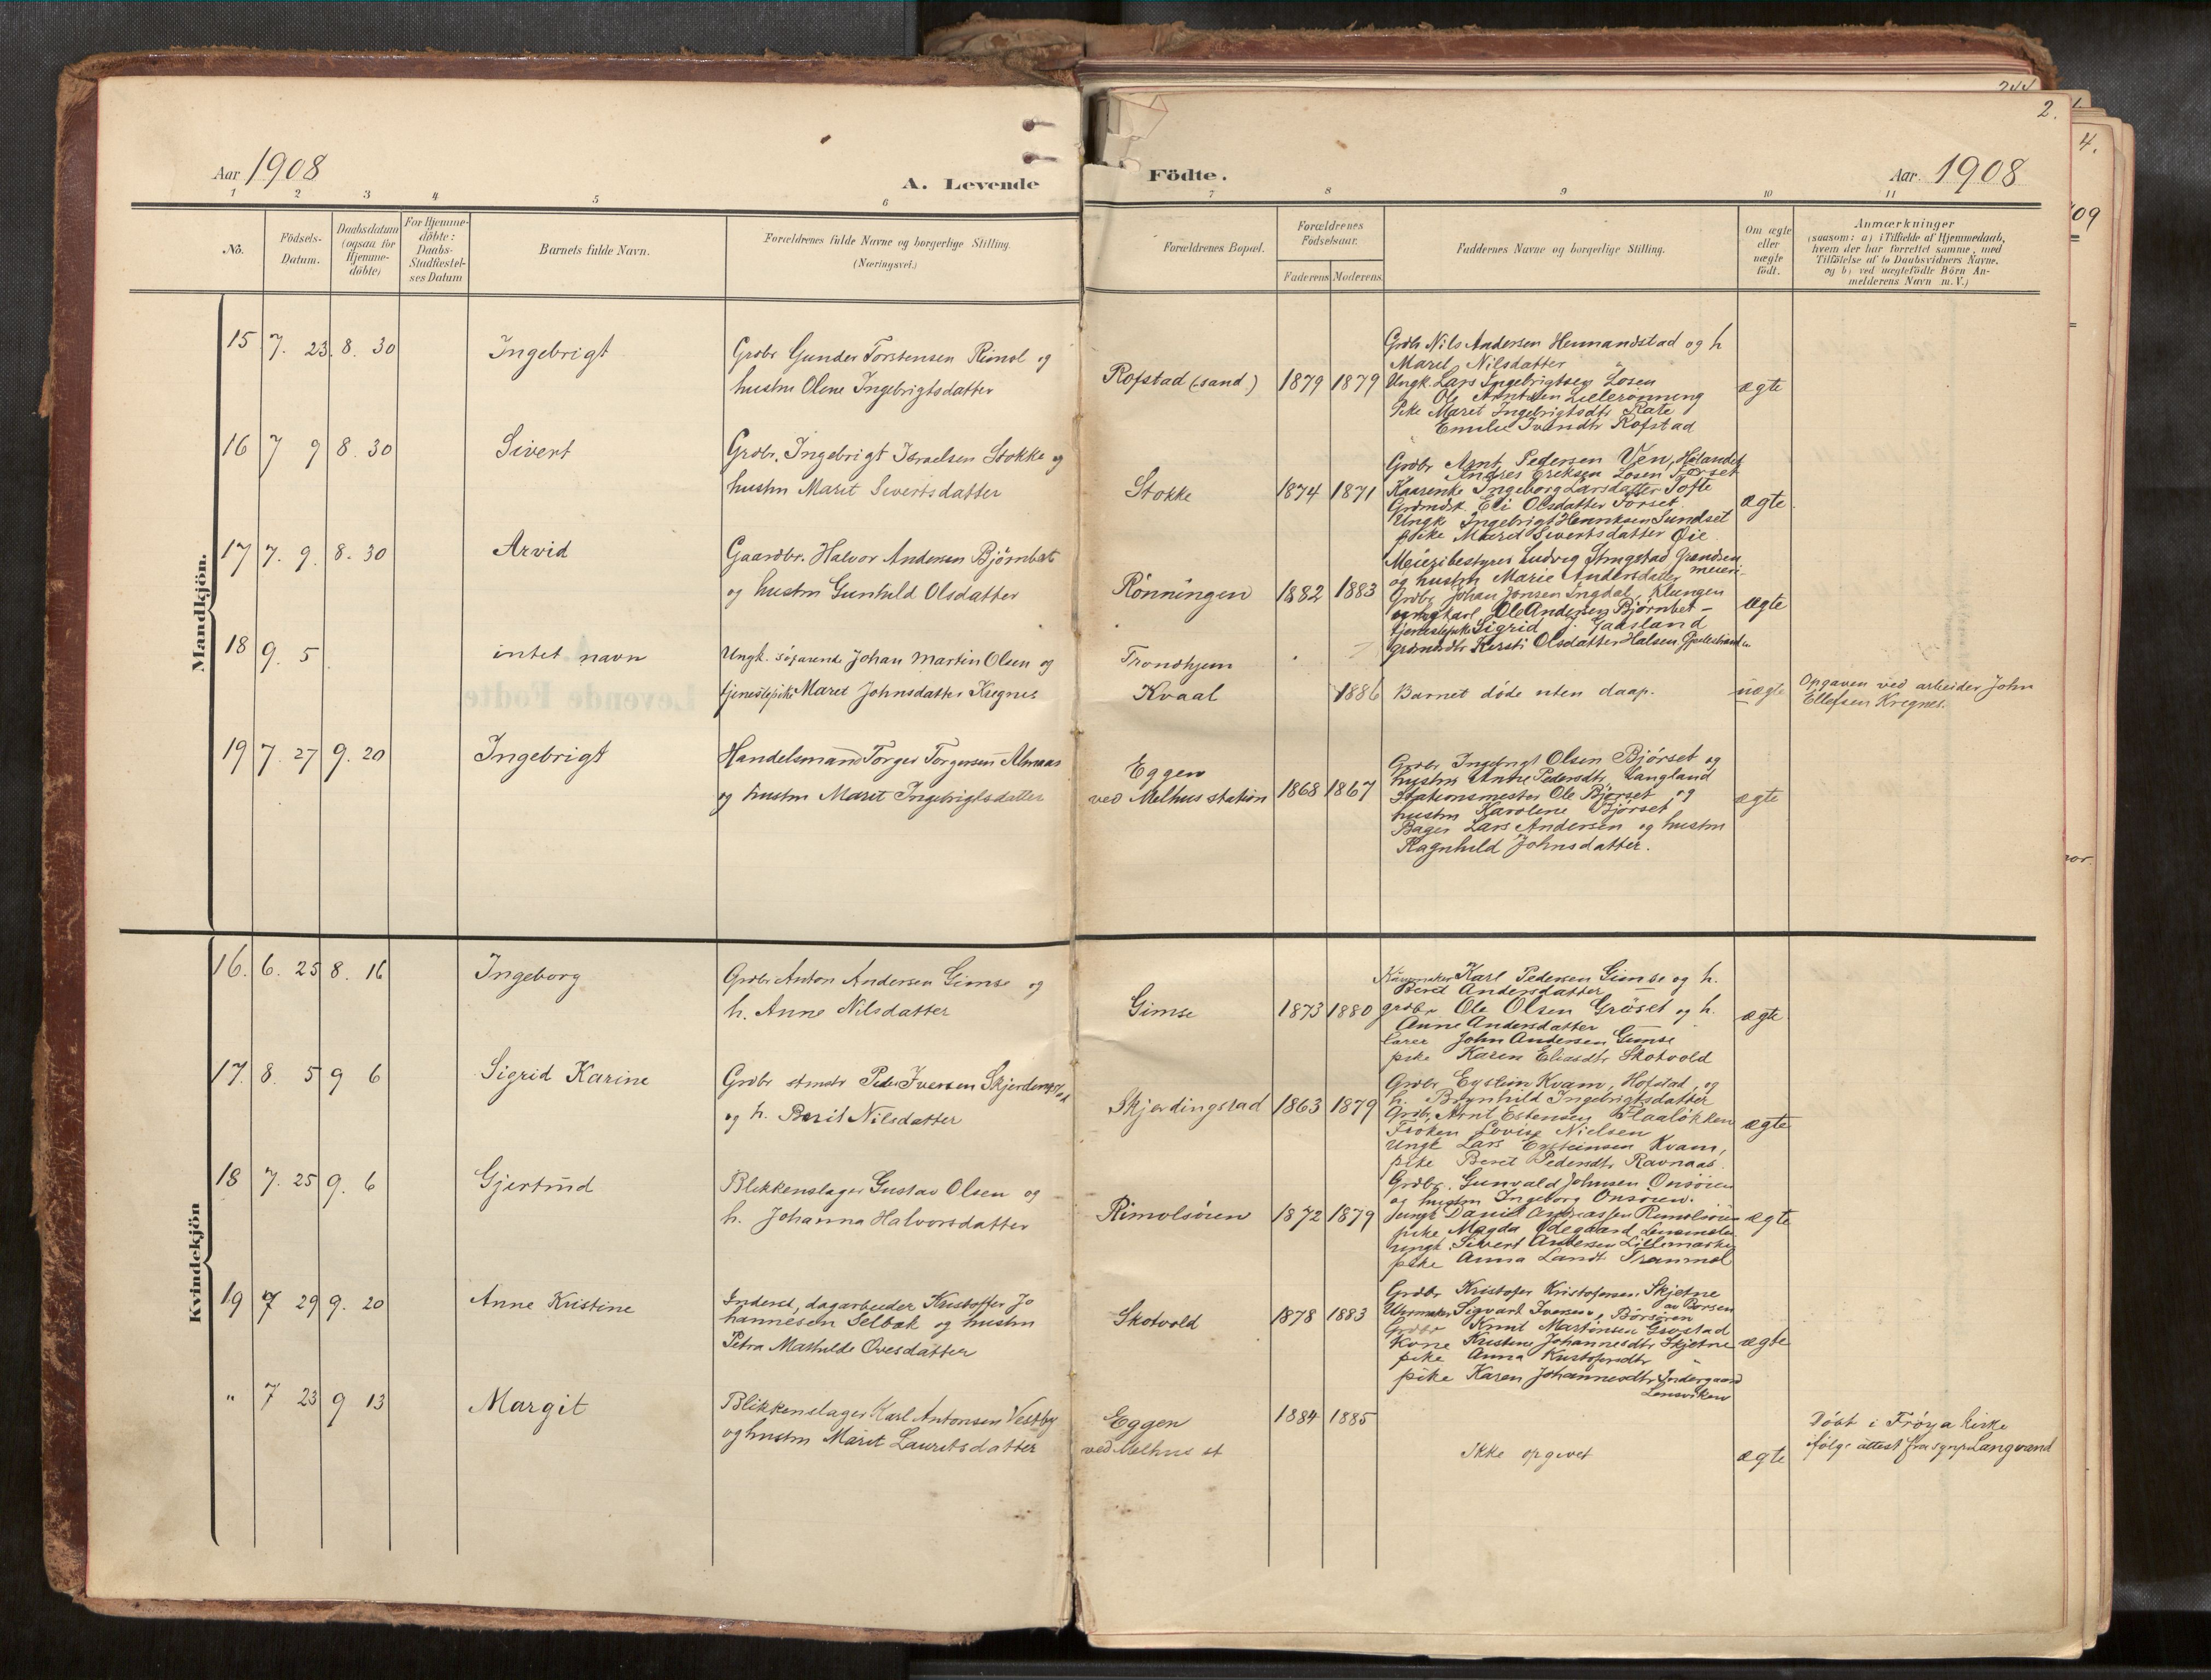 244
2.
4.
Aar 1908
A. Levende
Födte.
Aar. 1908
1 2 3 4 5 6 7 8 9 10 11
No.
Födsels-Datum.
Daabsdatum (ogsaa for Hjemme-döbte)
For Hjemme-döbte: Daabs-Stadfæstel-ses Datum
Barnets fulde Navn.
Forældrenes fulde Navne og borgerlige Stilling.
(Næringsvei.)
Forældrenes Bopæl.
Forældrenes Födselsaar.
Faderens Moderens
Faddernes Navne og borgerlige Stilling.
Om ægte eller uægte födt.
Anmærkninger
(saasom: a) i Tilfælde af Hjemmedaab,
hvem der har forrettet samme, med
Tilföielse af to Daabsvidners Navne,
og b) ved uægtefödte Börn An-
melderens Navn m. V.)
09
Mandkjön.
15 7. 23. 8. 30 Ingebrigt
Grdbr Gunder Torstensen Rimol og
hustru Olene Ingebrigtsdatter
Rofstad (sand) 1879 1879
Grdbr Nils Andersen Hermandstad og h
Marit Nilsdatter
Ungk. Lars Ingebrigtsen Losen
Ole Arntsen Lillerönning
Pike Maret Ingebrigtsdtr Rate
Emilie Ivandtr Rofstad
ægte
16 7 9 8. 30 Sivert
Grdbr. Ingebrigt Israelsen Stokke og
hustru Marit Sivertsdatter
Stokke 1874 1871
Grdbr Arnt Pedersen Ven, Hölandet
Andres Eriksen Losen Forset
Kaarenke Ingeborg Larsdatter Tofte
Grdmdsk. Eli Olsdatter Forset
Ungk Ingebrigt Henriksen Sundset
pike Marit Sivertsdatter Öie
ægte
17 7. 9. 8. 30 Arvid
Gaardbr. Halvor Andersen Björnbet
og hustru Gunhild Olsdatter
Rönningen 1882 1883
Meieribestyrer Ludvig Strugstad Grandsen
og hustru Marie Andersdatter meieri-
Grdbr Johan Jonsen Ingdal, Klungen
ungkarl Ole Andersen Björnbet -
tjenestepike Sigrid J. Gaasland
grdmdtr Kersti Olsdatter Halsen
ægte
18 9. 5 intet navn
Ungk. söfarende Johan Martin Olsen og
tjenestepike Maret Johnsdatter Kregnes
Trondhjem
Kvaal 1886 Barnet döde uten daap. uægte
Opgaven ved arbeider John
Ellefsen Kregnes.
19 7. 27 9. 20 Ingebrigt
Handelsmand Torger Torgersen Almaas
og hustru Marit Ingebrigtsdatter
Eggen
ved Melhus station 1868 1867
Grdbr Ingebrigt Olsen Björset og
hustru Anne Pedersdtr Langland
Stationsmester Ole Björset og
hustru Karolene Björset
Bager Lars Andersen og hustru
Ragnhild Johnsdatter.
ægte
Kvindekjön
16. 6. 25 8. 16 Ingeborg
Grdbr Anton Andersen Gimse og
h. Anne Nilsdatter
Gimse 1873 1880
Karl Pedersen Gimse og h.
Beret Andersdatter
grdbr Ole Olsen Gröset og h.
Anne Andersdatter
lærer John Andersen Gimse
pike Karen Eliasdtr Skotvold
ægte
17. 8. 5 9 6 Sigrid Karine
Grdbr Peder Iversen Skjerdingstad
og h. Berit Nilsdatter
Skjerdingstad 1863 1879
Grdbr Eystein Kvam, Hofstad, og
h. Brynhild Ingebrigtsdatter
Grdbr. Arnt Estensen Flaalökken
Fröken Lovise Nielsen
Ungk Lars Eysteinsen Kvam,
pike Beret Pedersdtr Ravnaas.
ægte
18 7. 25 9. 6 Gjertrud
Blikkenslager Gustav Olsen og
h. Johanna Halvorsdatter
Rimolsören 1872 1879
Grdbr. Gunvald Johnsen Önsören
og hustru Ingeborg Önsören.
Ungk Daniel Andreassen Rimolsören
pike Magda Ödegaard
ungk. Sivert Andersen Lillemarken
pike Anna Landt
ægte
19 7 29 9. 20 Anne Kristine
Inderst, dagarbeider Kristoffer Jo
hannesen Selbæk og hustru
Petra Mathilde Ovesdatter
Skotvold 1878 1883
Grdbr Kristofer Kristofersen Skjetne
av Börsen
Urmaker Sigvart Iversen, Börsören
Grdbr Knut Martinsen
Kone Kristine Johannesdtr Skjetne
pike Anna Kristofersdtr "
pike Karen Johannesdtr Indergaard
Lensviken
ægte
" 7 23 9 13 Margit
Blikkenslager Karl Antonsen Vestby
og hustru Marit Lauritsdatter
Eggen
ved Melhus st 1884 1885
Ikke opgivet
ægte
Döbt i Fröya kirke
ifölge attest fra sgnpr Langvand